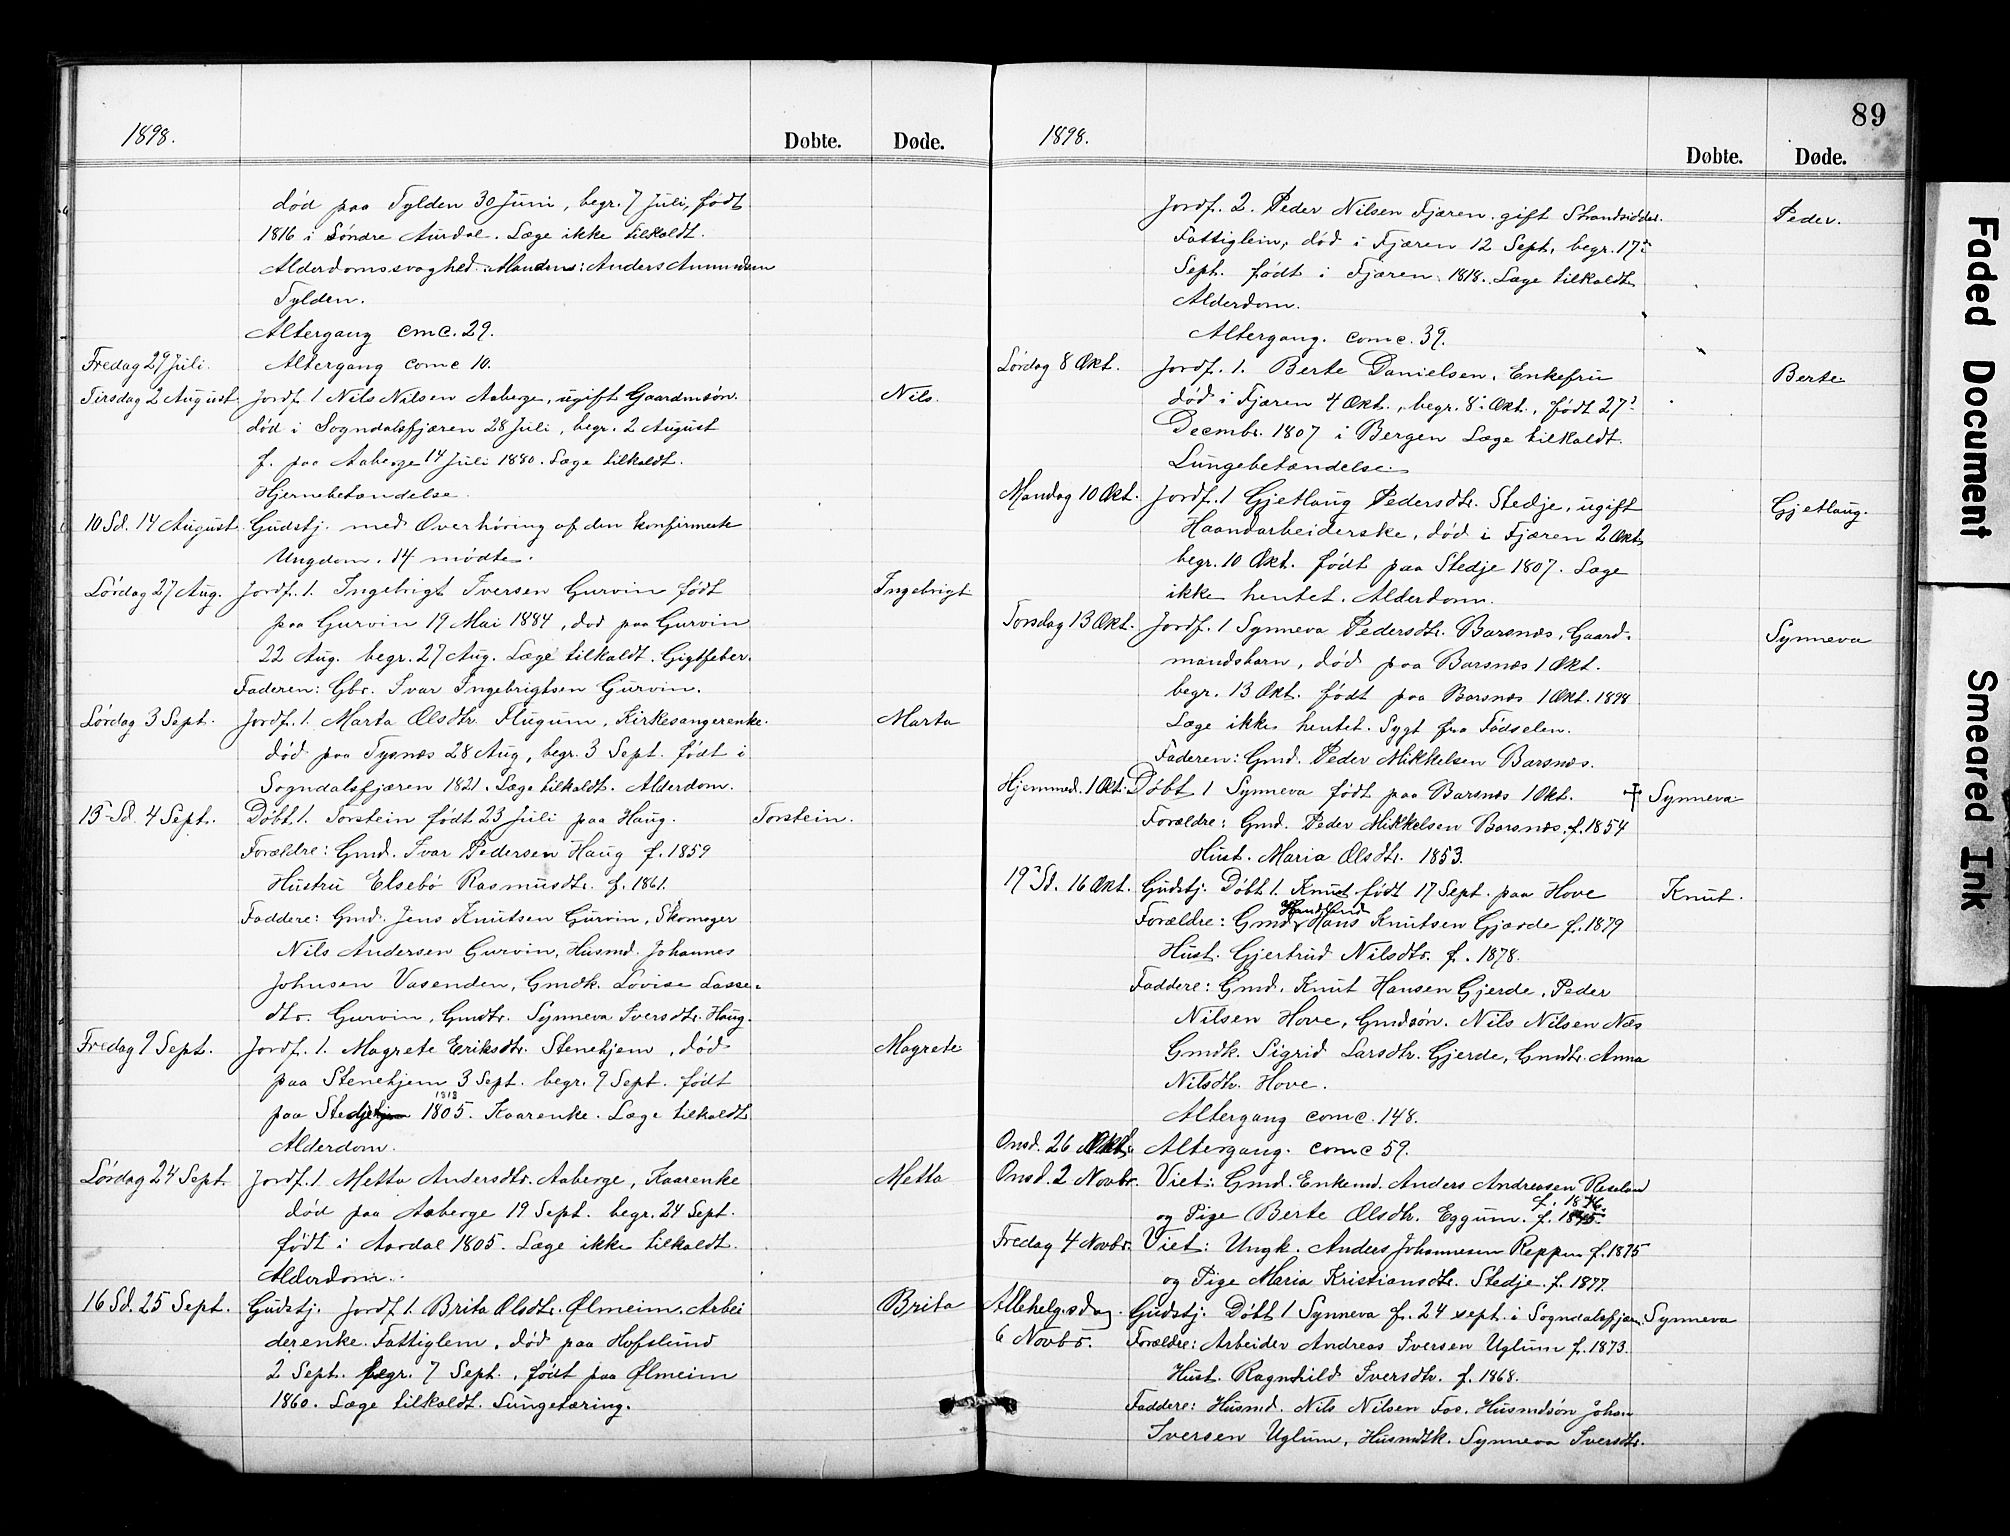 1898.
Døbte.
Døde.
død paa Tylden 30 Juni, begr. 7 Juli, født
1816 i Søndre Aurdal. Læge ikke tilkaldt.
Alderdomssvaghed. Manden: Anders Amundsen
Tylden.
Altergang cmc. 29.
Fredag 29 Juli. Altergang comc 10.
Tirsdag 2 August Jordf. 1 Nils Nilsen Aaberge, ugift Gaardmsøn. Nils.
død i Sogndalsfjæren 28 Juli, begr. 2 August
f. paa Aaberge 14 Juli 1880. Læge tilkaldt.
Hjernebetændelse.
10 Sd. 14 August Gudstj. med Overhøring af den konfirmerte
Ungdom. 14 mødte.
Lørdag 27 Aug. Jordf. 1. Ingebrigt Iversen Gurvin født Ingebrigt
paa Gurvin 19 Mai 1884, død paa Gurvin
22 Aug. begr. 27 Aug. Læge tilkaldt. Gigtfeber.
Faderen: Gbr. Ivar Ingebrigtsen Gurvin.
Lørdag 3 Sept. Jordf. 1. Marta Olsdtr. Flugum, Kirkesangerenke. Marta
død paa Tygnæs 28 Aug, begr. 3 Sept. født i
Sogndalsfjæren 1821. Læge tilkaldt. Alderdom.
13 Sd. 4 Sept. Døbt 1. Torstein født 23 Juli paa Haug. Torstein.
Forældre: Gmd. Ivar Pedersen Haug f. 1859
Hustru Elsebø Rasmusdtr. f. 1861.
Faddere: Gmd. Jens Knutsen Gurvin, Skomager
Nils Andersen Gurvin, Husmd. Johannes
Johnsen Vasenden, Gmdk. Lovise Lasse-
dtr. Gurvin, Gmdtr. Synneva Iversdtr. Haug.
Fredag 9 Sept. Jordf. 1. Magrete Eriksdtr. Stenehjem, død Magrete
paa Stenehjem 3 Sept. begr. 9 Sept. født
1818
paa Stedje 1805. Kaarenke. Læge tilkaldt
Alderdom.
Lørdag 24 Sept. Jordf. 1 Metta Andersdtr. Aaberge, Kaarenke Metta
død paa Aaberge 19 Sept. begr. 24 Sept.
født i Aardal 1805. Læge ikke tilkaldt.
Alderdom.
16 Sd. 25 Sept. Gudstj. Jordf 1. Brita Olsdtr. Ølmeim. Arbei Brita
derenke. Fattiglem, død paa Hofslund
2 Sept. begr. 7 Sept., født paa Ølmeim
1860. Læge tilkaldt. Lungetæring.
89
1898.
Døbte.
Døde.
Jordf. 2. Peder Nilsen Fjæren. gift Strandsidder. Peder.
Fattiglem, død i Fjæren 12 Sept, begr. 17
Sept. født i Fjæren 1818. Læge tilkaldt.
Alderdom.
Altergang. comc. 39.
Lørdag 8 Okt. Jordf. 1. Berte Danielsen, Enkefru Berte
død i Fjæren 4 Okt., begr. 8 Okt., født 27
Decembr. 1807 i Bergen Læge tilkaldt.
Lungebetændelse.
Mandag 10 Okt. Jordf. 1 Gjetlaug Pedersdtr. Stedje, ugift Gjetlaug.
Haandarbeiderske, død i Fjæren 2 Okt
begr. 10 Okt. født paa Stedje 1807. Læge
ikke hentet. Alderdom.
Torsdag 13 Okt. Jordf. 1 Synneva Pedersdtr. Barsnæs, Gaard- Synneva
mandsbarn, død paa Barsnæs 1 Okt.
begr. 13 Okt. født paa Barsnæs 1 Okt. 1898
Læge ikke hentet. Sygt fra Fødselen.
Faderen: Gmd. Peder Mikkelsen Barsnæs.
Hjemmed. 1 Okt. Døbt 1 Synneva født paa Barsnæs 1 Okt. † Synneva
Forældre: Gmd. Peder Mikkelsen Barsnæs. f. 1854
Hust. Maria Olsdtr. 1853.
19 Sd. 16 Okt. Gudstj. Døbt 1. Knut født 17 Sept. paa Hove Knut.
Forældre: Gmd. Hans Knutsen Gjærde f. 1879
Hust. Gjertrud Nilsdtr. f. 1878.
Faddere: Gmd. Knut Hansen Gjerde, Peder
Nilsen Hove, Gmdsøn. Nils Nilsen Næs
Gmdk. Sigrid Larsdtr. Gjerde, Gmdtr. Anna
Nilsdtr. Hove.
Altergang comc. 148.
Onsd. 26 Okt. Altergang. comc 59.
Onsd. 2 Novbr. Viet: Gmd. Enkemd. Anders Andreasen Reseland
f. 1846.
og Pige Berte Olsdtr. Eggum. f.
Fredag 4 Novbr. Viet: Ungk. Anders Johannesen Reppen f. 1875
og Pige Maria Kristiansdtr. Stedje. f. 1877.
Allehelg.sdag. Gudstj. Døbt 1 Synneva f. 24 sept. i Sogndalsfjæren. Synneva
6 Novbr. Forældre: Arbeider Andreas Iversen Uglum f. 1873.
Hust. Ragnhild Iversdtr. f. 1868.
Faddere: Husmd. Nils Nilsen Fos. Husmdsøn Johan
Iversen Uglum, Husmdtk. Synneva Iversdtr.
Faded Document
Smeared Ink